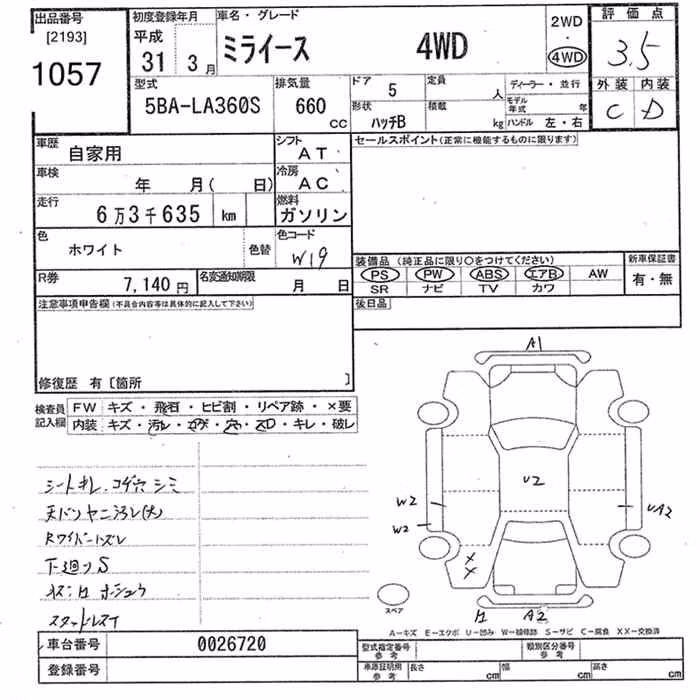 出品番号 [2193] 1057
初度登録年月 平成 31年 3月
車名・グレード ミライース 4WD
2WD ・ 4WD
評価点 3.5
外装 内装
C D
型式 5BA-LA360S
排気量 660 CC
ドア 5
定員 人
ディーラー・並行
形状 ハッチB
積載 kg
モデル年式 年
ハンドル 左・右
車歴 自家用
シフト AT
セールスポイント(正常に機能するものに限ります)
車検 年 月( 日)
冷房 AC
走行 6万3千635 km
燃料 ガソリン
色 ホワイト 色替
色コード W19
装備品 (純正品に限り○をつけてください)
新車保証書 有・無
PS PW ABS エアB AW
SR ナビ TV カワ
R券 7,140円
名変通知期限 月 日
後日品
注意事項申告欄(不具合内容等は具体的に記入して下さい)
修復歴 有〔箇所 〕
検査員記入欄
FW キズ・飛石・ヒビ割・リペア跡・×要
内装 キズ・汚レ・コゲ・穴・スレ・キレ・破レ
シートキレ、コゲ穴 シミ
天バリヤニ汚レ(大)
Rワイパーズレ
下廻りS
スタッドレス
A1
U2
W2
W2
UA2
×
×
スペア
A2
A-キズ E-エクボ U-凹み W-補修跡 S-サビ C-腐食 XX-交換済
車台番号 0026720
登録番号
型式指定番号 参考
類別区分番号 参考
車庫証明用 参考 長さ cm 幅 cm 高さ cm